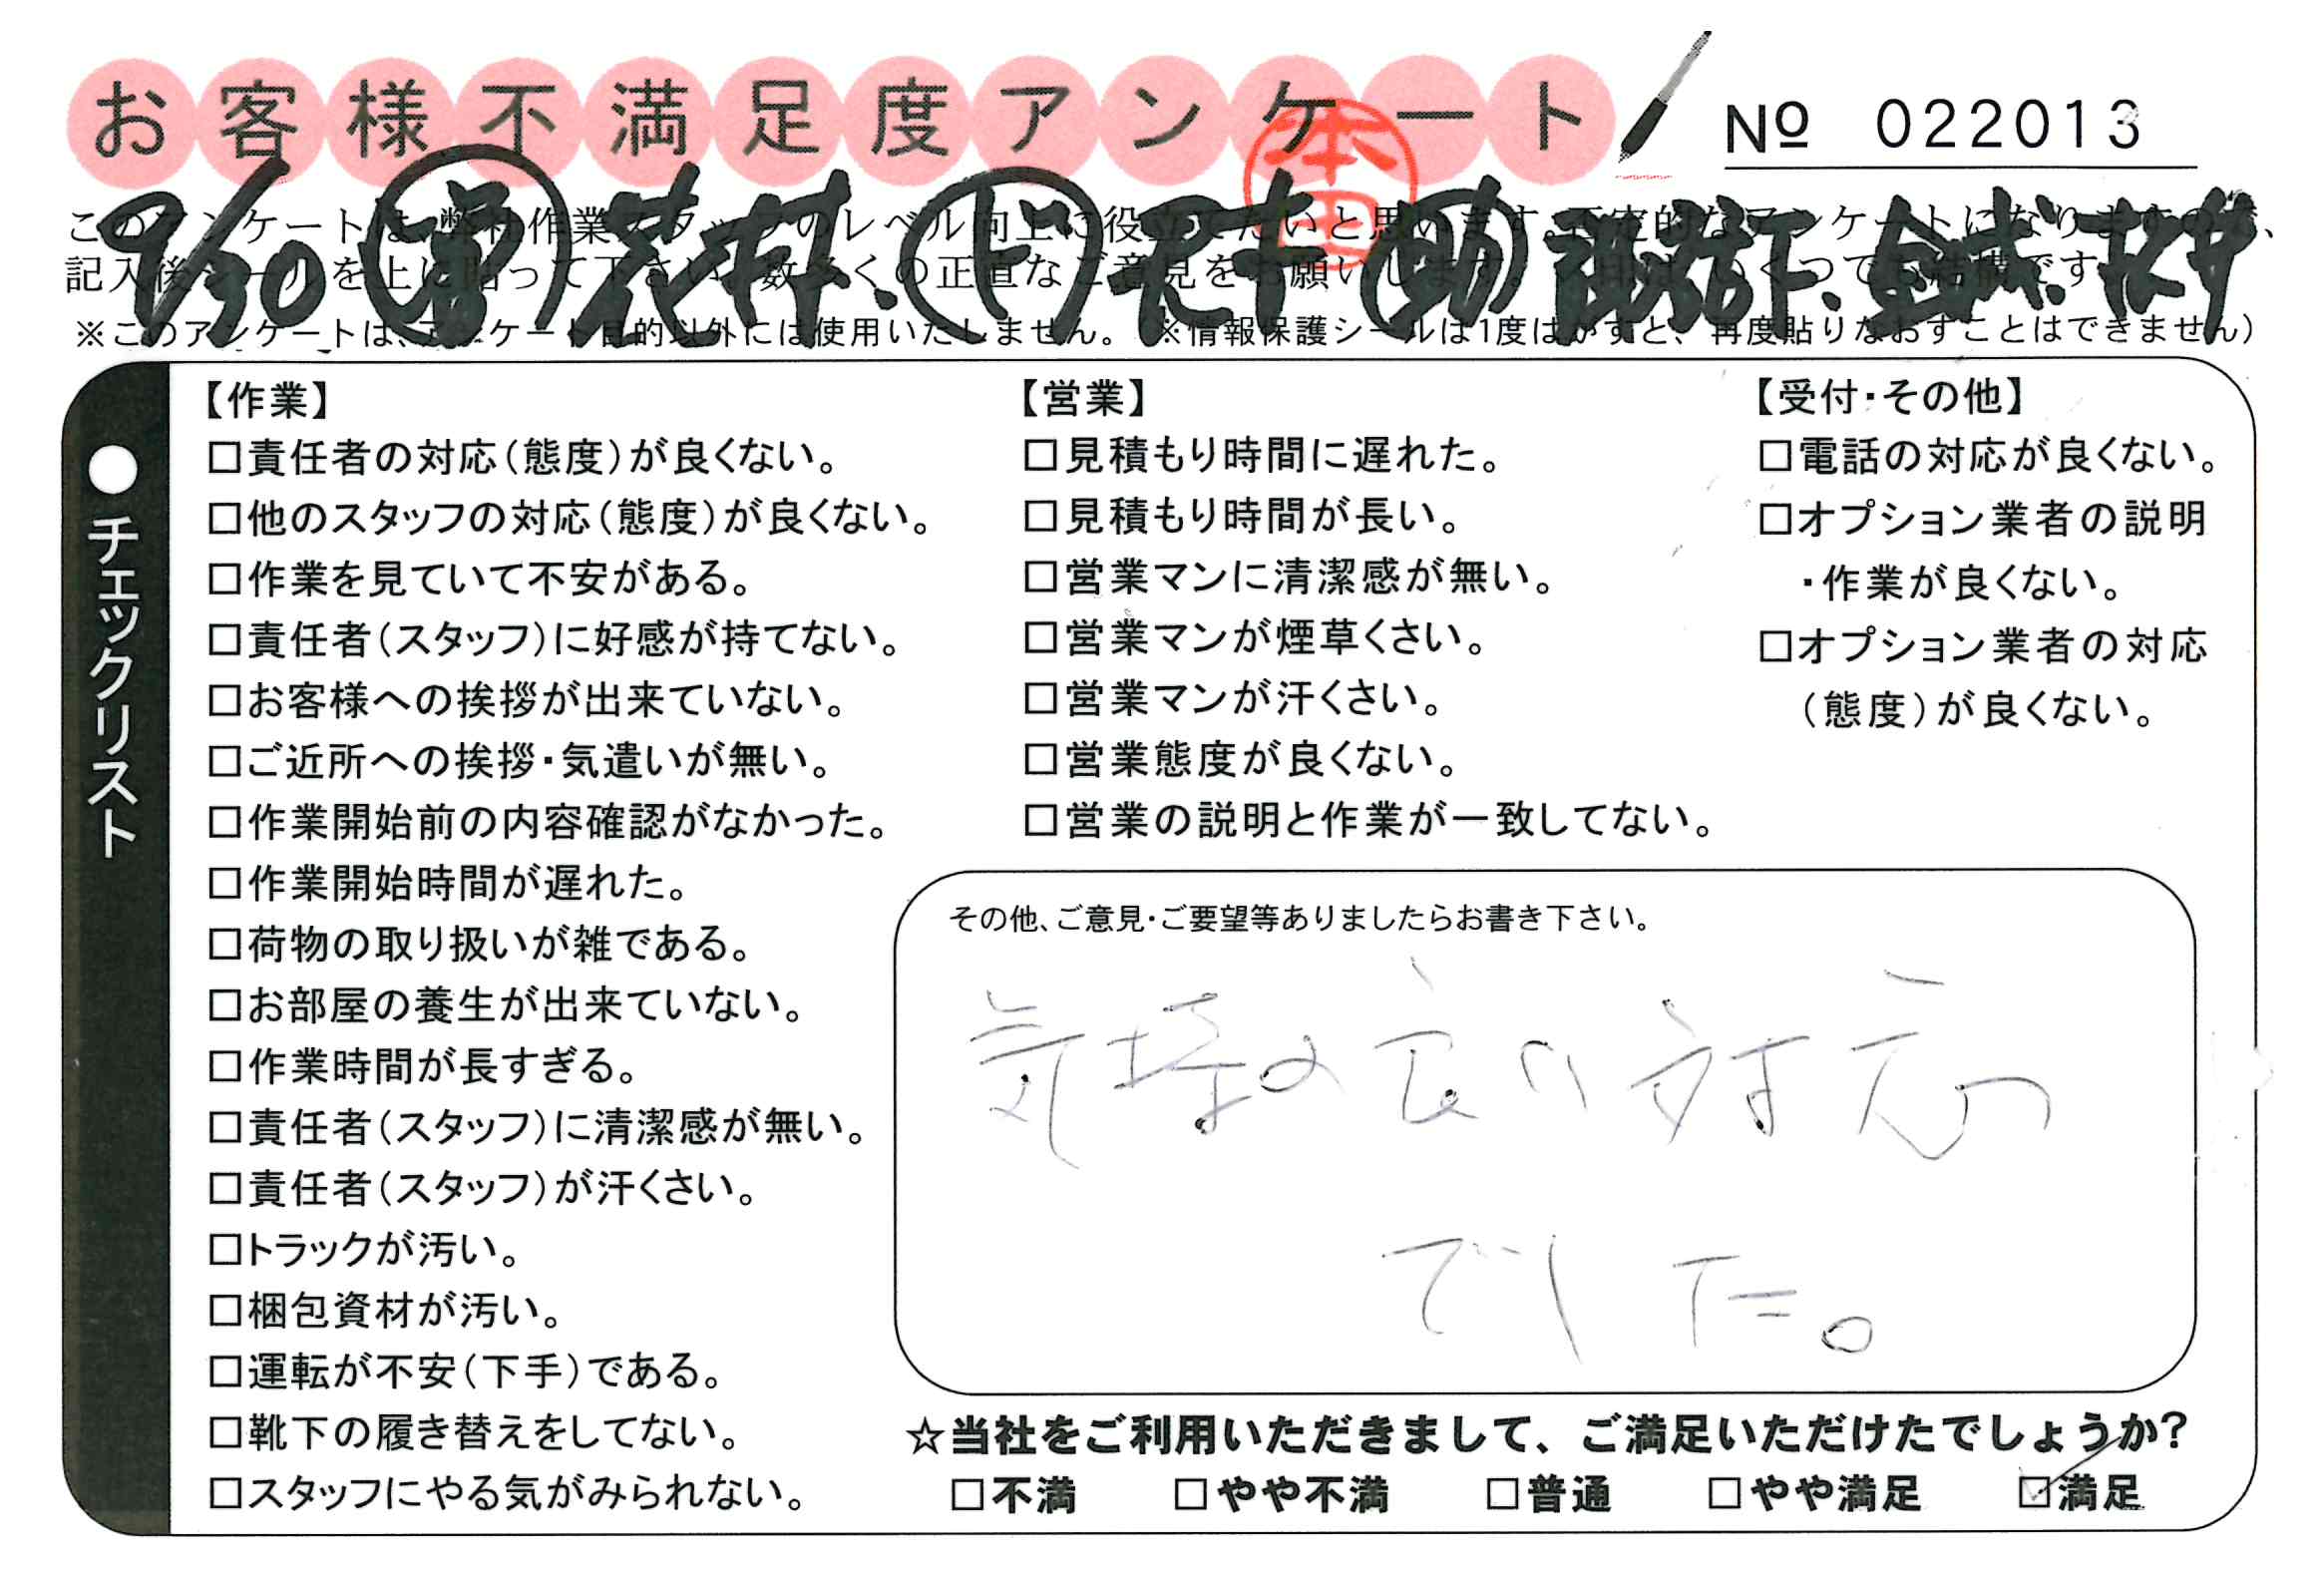 お客様不満足度アンケート
№ 022013
本田
9/30 営 ド 助
※このアンケートは、アンケート目的以外には使用いたしません。(※情報保護シールは1度はがすと、再度貼りなおすことはできません)
●チェックリスト
【作業】
□責任者の対応(態度)が良くない。
□他のスタッフの対応(態度)が良くない。
□作業を見ていて不安がある。
□責任者(スタッフ)に好感が持てない。
□お客様への挨拶が出来ていない。
□ご近所への挨拶・気遣いが無い。
□作業開始前の内容確認がなかった。
□作業開始時間が遅れた。
□荷物の取り扱いが雑である。
□お部屋の養生が出来ていない。
□作業時間が長すぎる。
□責任者(スタッフ)に清潔感が無い。
□責任者(スタッフ)が汗くさい。
□トラックが汚い。
□梱包資材が汚い。
□運転が不安(下手)である。
□靴下の履き替えをしてない。
□スタッフにやる気がみられない。
【営業】
□見積もり時間に遅れた。
□見積もり時間が長い。
□営業マンに清潔感が無い。
□営業マンが煙草くさい。
□営業マンが汗くさい。
□営業態度が良くない。
□営業の説明と作業が一致してない。
【受付・その他】
□電話の対応が良くない。
□オプション業者の説明
・作業が良くない。
□オプション業者の対応
(態度)が良くない。
その他、ご意見・ご要望等ありましたらお書き下さい。
気持の良い対応
でした。
☆当社をご利用いただきまして、ご満足いただけたでしょうか?
□不満 □やや不満 □普通 □やや満足 ☑満足